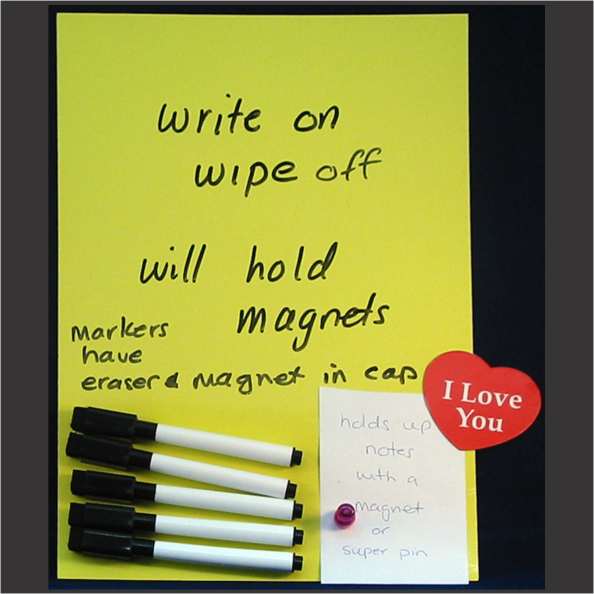 write on
wipe off
will hold
magnets
markers
have
eraser & magnet in cap
I Love
You
holds up
notes
with a
magnet
or
super pin